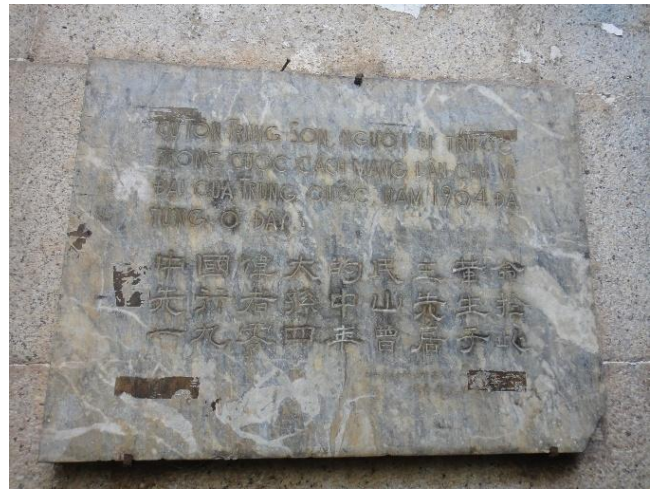 CỤ TÔN TRUNG SƠN, NGƯỜI ĐI TRƯỚC
TRONG CUỘC CÁCH MẠNG DÂN CHỦ VĨ
ĐẠI CỦA TRUNG QUỐC, NĂM 1904 ĐÃ
TỪNG Ở ĐÂY.
中國偉大的民主革命
先行者孫中山先生於
一九四年曾居于此